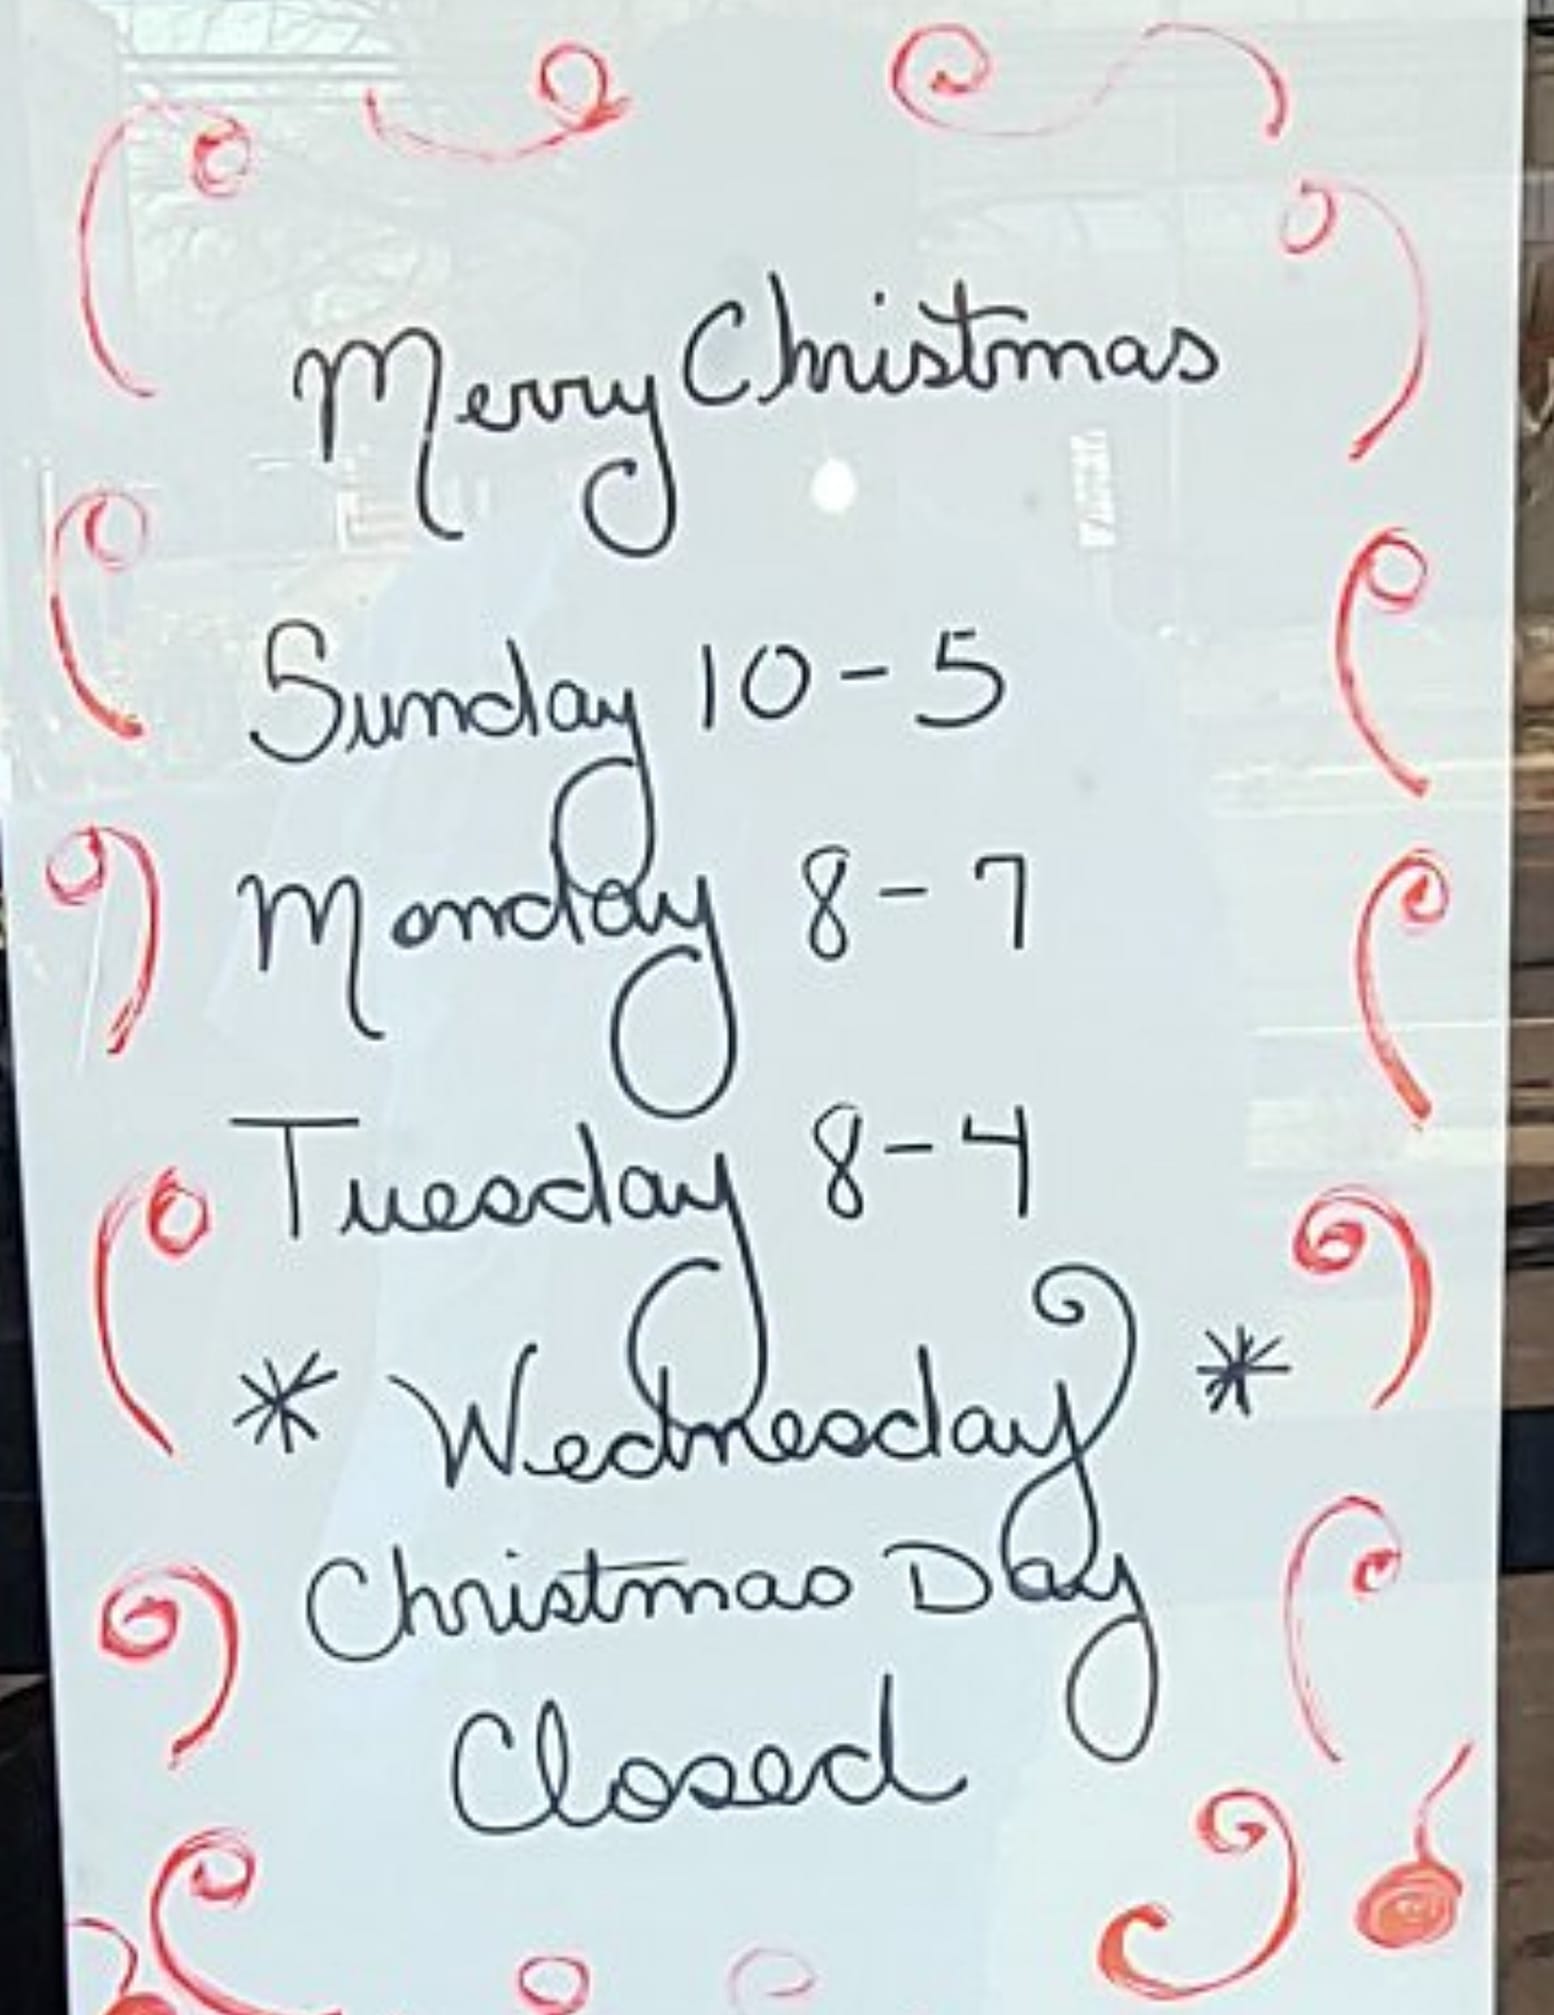 Merry Christmas
Sunday 10-5
Monday 8-7
Tuesday 8-4
* Wednesday *
Christmas Day
Closed